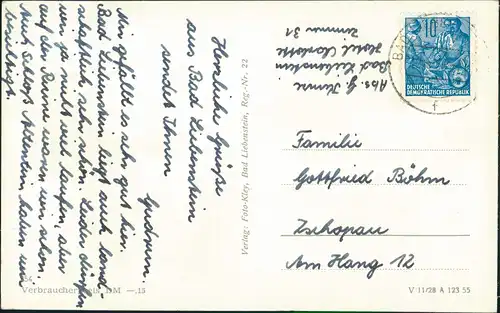 Herzliche Grüße
aus Bad Liebenstein
sendet Ihnen
Gudrun.
Mir gefällt es sehr gut hier.
Bad Liebenstein liegt auch land-
schaftlich sehr schön. Leider dürfen
wir ja nicht viel laufen, aber
auf der Ruine waren wir schon.
Auch Schloß Altenstein haben wir
besichtigt.
Verbraucherpreis DM —.15
Verlag: Foto-Kley, Bad Liebenstein, Reg.-Nr. 22
Abs. G.
Bad Liebenstein
Hotel Charlotte
Zimmer 31
10
DEUTSCHE
DEMOKRATISCHE REPUBLIK
BAD
f
Familie
Gottfried Böhm
Zschopau
Am Hang 12
V 11/28 A 123 55